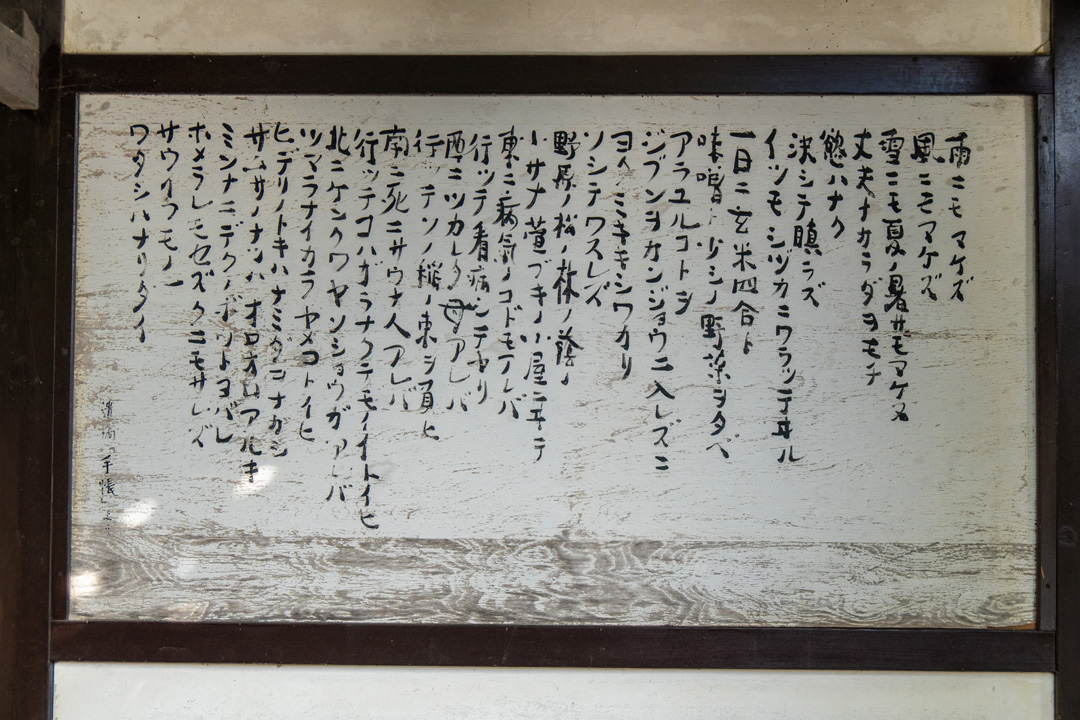 雨ニモマケズ
風ニモマケズ
雪ニモ夏ノ暑サニモマケヌ
丈夫ナカラダヲモチ
慾ハナク
決シテ瞋ラズ
イツモシヅカニワラッテヰル
一日ニ玄米四合ト
味噌ト少シノ野菜ヲタベ
アラユルコトヲ
ジブンヲカンジョウニ入レズニ
ヨクミキキシワカリ
ソシテワスレズ
野原ノ松ノ林ノ蔭ノ
小サナ萱ブキノ小屋ニヰテ
東ニ病気ノコドモアレバ
行ッテ看病シテヤリ
西ニツカレタ母アレバ
行ッテソノ稲ノ束ヲ負ヒ
南ニ死ニサウナ人アレバ
行ッテコハガラナクテモイイトイヒ
北ニケンクワヤソショウガアレバ
ツマラナイカラヤメロトイヒ
ヒデリノトキハナミダヲナガシ
サムサノナツハオロオロアルキ
ミンナニデクノボウトヨバレ
ホメラレモセズクニモサレズ
サウイフモノニ
ワタシハナリタイ
「手帳」